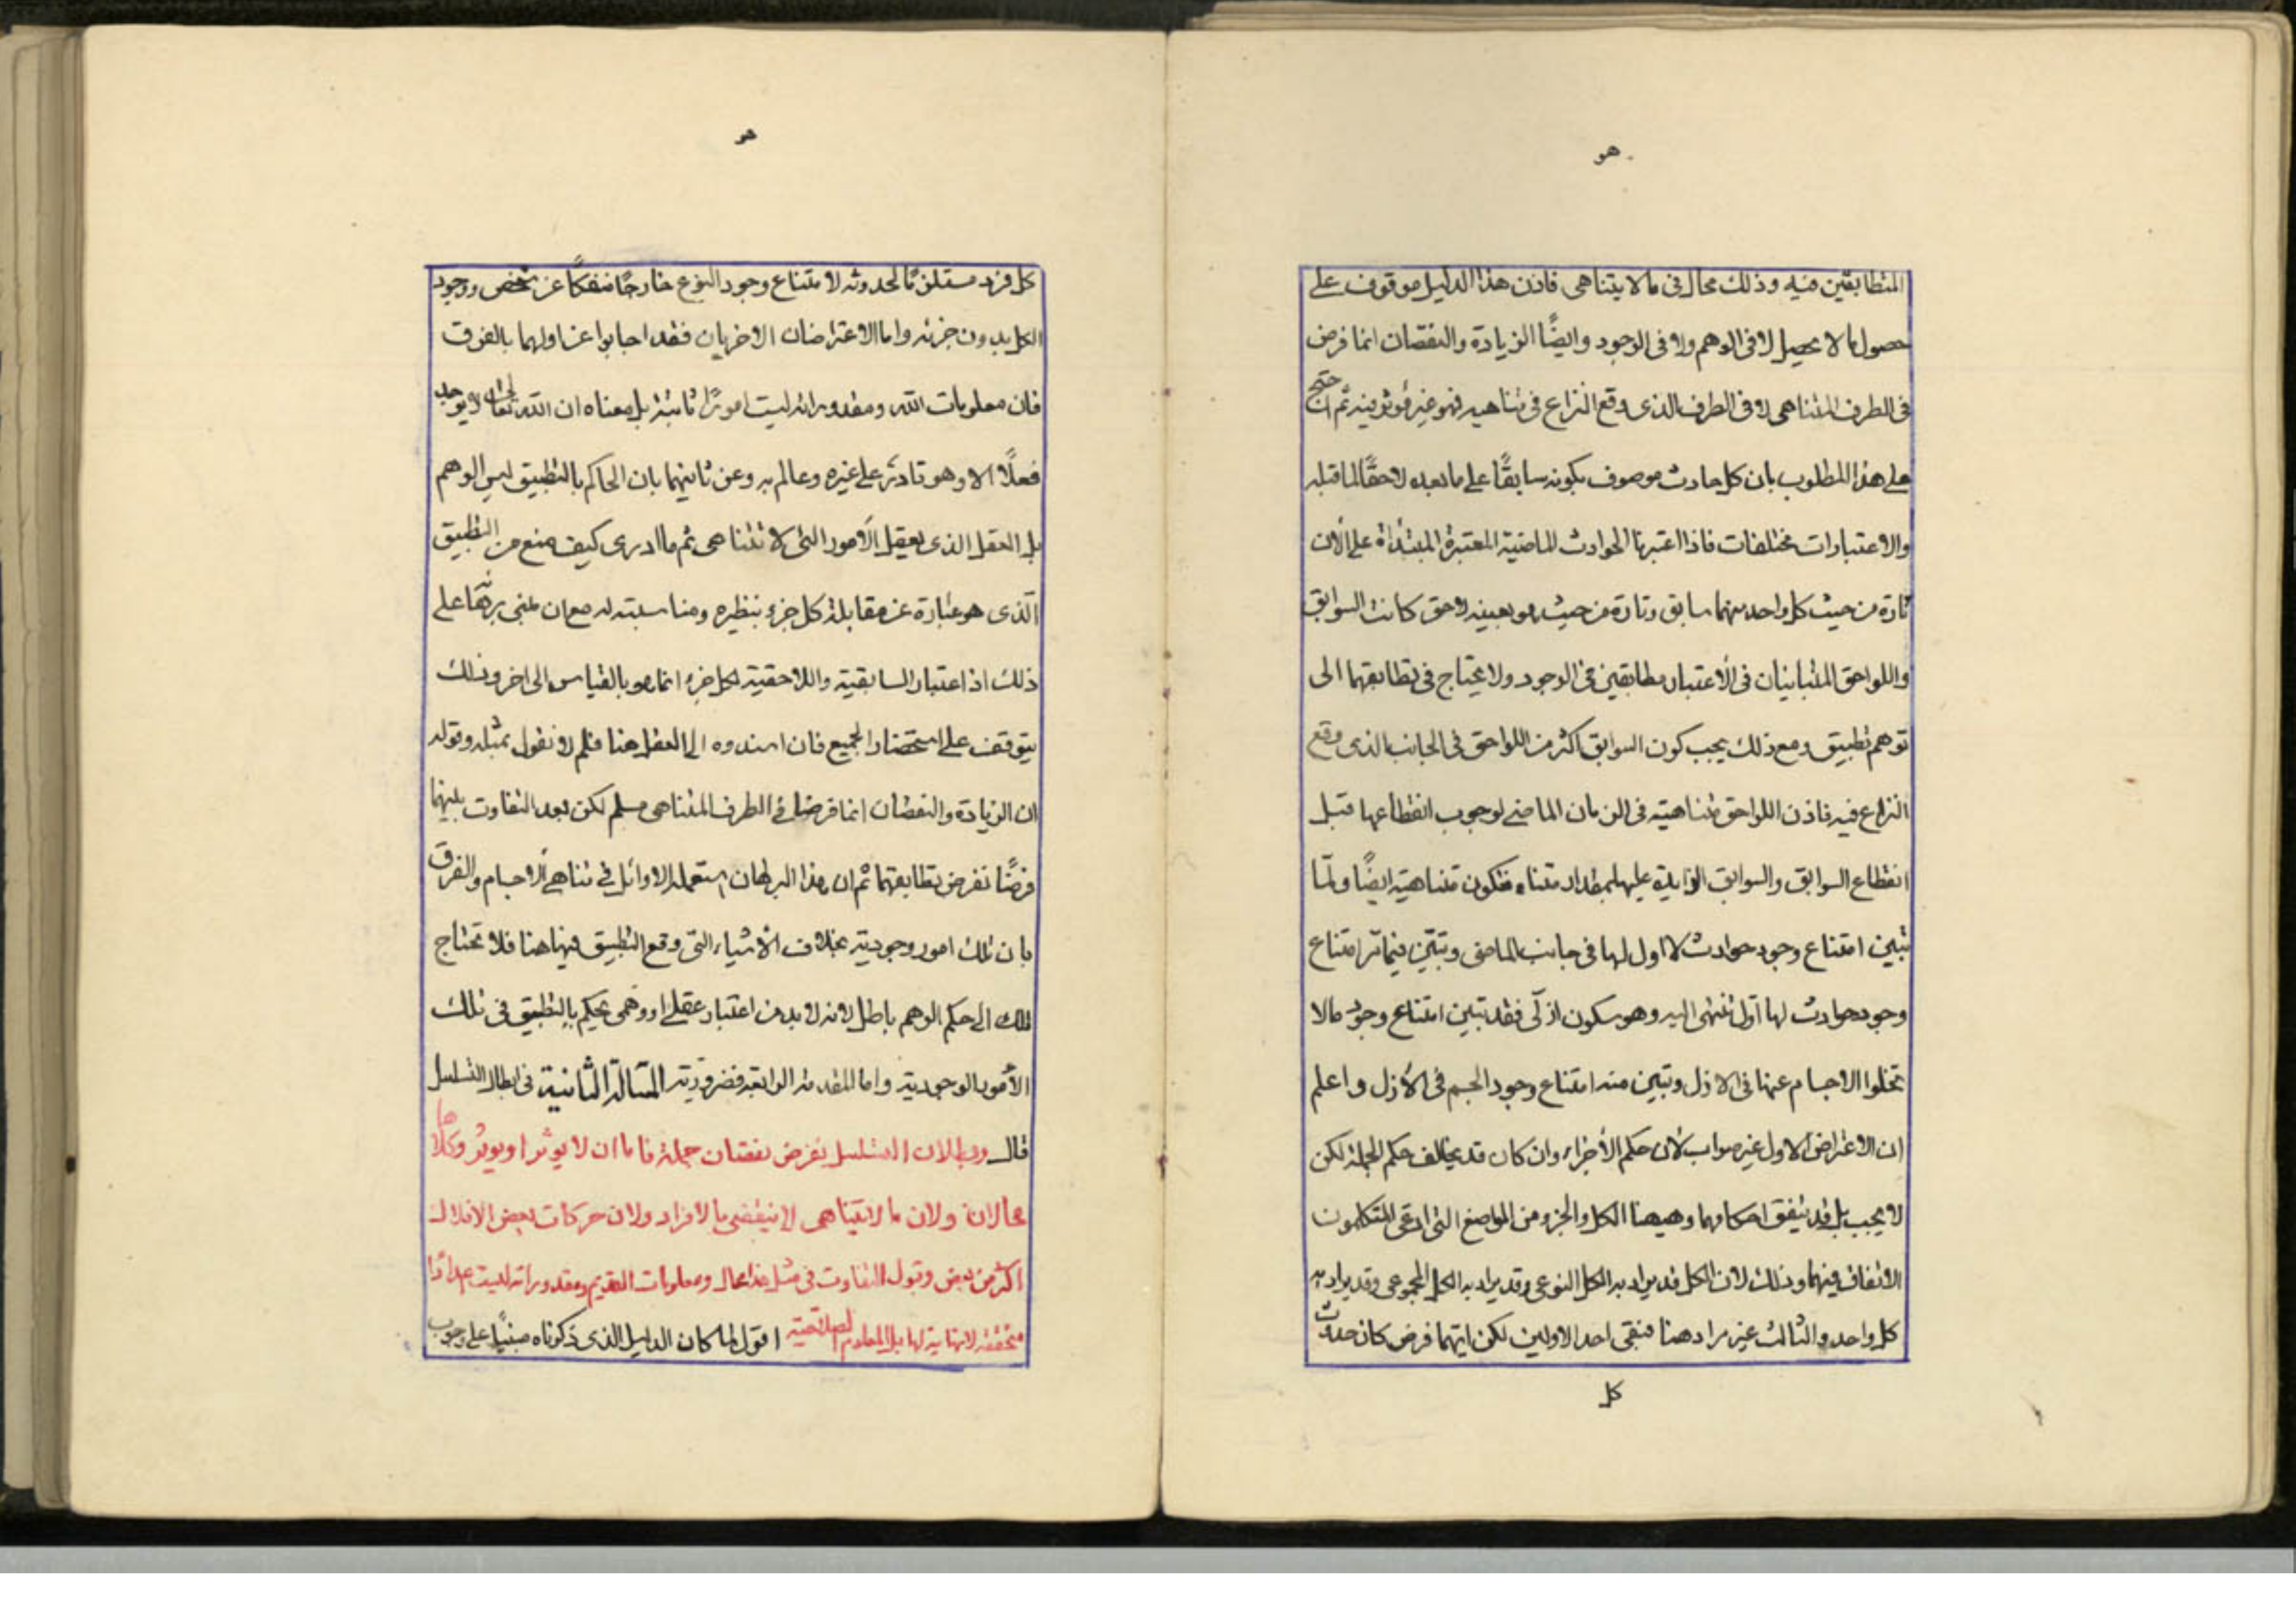 هو
المتطابقين فيه وذلك محال فى ما لا يتناهى فاذن هذا الدليل موقوف على
حصول ما لا يحصل لا فى الوهم ولا فى الوجود وايضًا الزيادة والنقصان انما فرض
فى الطرف المتناهى لا فى الطرف الذى وقع النزاع فى تناهيه فهو غير مؤثر فيه ثم ان احتج
على هذا المطلوب بان كل حادث موصوف بكونه سابقًا على ما بعده لاحقًا لما قبله
والاعتبارات مختلفات فاذا اعتبرنا الحوادث الماضية المعتبرة المبتدأة على الأن
تارة من حيث كل واحد منهما سابق وتارة من حيث هو بعينه لاحق كانت السوابق
واللواحق المتباينيان فى الأعتبار مطابقين فى الوجود ولا يحتاج فى تطابقهما الى
توهم تطبيق ومع ذلك يجب كون السوابق اكثر من اللواحق فى الجانب الذى وقع
النزاع فيه فاذن اللواحق متناهية فى الزمان الماضى لوجوب انقطاعها قبل
انقطاع السوابق والسوابق الزايدة عليها بمقداد متناه فتكون متناهية ايضًا ولمّا
تبين امتناع وجود حوادث لا اول لها فى جانب الماضى وتبيّن فيما مر امتناع
وجود حوادث لها اوّل تنتهى اليه وهو سكون ازلّى فقد تبين امتناع وجود مالا
تخلوا الاجسام عنها فى الازل وتبين منه امتناع وجود الجسم فى الأزل واعلم
ان الاعتراض الاول غير صواب لأن حكم الأجزاء وان كان قد يخالف حكم الجملة لكن
لا يجب بل قد يتفق احكامهما وهيهنا الكل والجزو من المواضع التى ادعى المتكلمون
الاتفاق فيهما وذلك لان الكل قد يراد به الكل النوعى وقد يراد به الكل المجموعى وقد يراد به
كل واحد والثالث غير مراد هنا فبقى احد الاولين لكن ايهما فرض كان حدوث
كل
هو
كل فرد مستلزمًا لحدوثه لامتناع وجود النوع خارجًا منفكًا عن شخص ووجود
الكل بدون جزئه واما الاعتراضان الاخريان فقد اجابوا عن اولهما بالفرق
فان معلومات الله ومقدوراته ليست امورًا ثابتة بل معناه ان الله تعالى لا يوجد
فعلًا الا وهو قادر على غيره وعالم به وعن ثانيهما بان الحاكم بالتطبيق ليس الوهم
بل العقل الذى يعقل الأمور التى لا تتناهى ثم ما ادرى كيف منع من التطبيق
الّذى هو عبارة عن مقابلة كل جزو بنظيره ومناسبته له مع ان مبنى برهانه على
ذلك اذ اعتبار السابقية واللاحقية لكل جزء انما هو بالقياس الى اخر وذلك
يتوقف على استحضار الجميع فان اسندوه الى العقل هنا فلم لا نقول بمثله وقوله
ان الزيادة والنقصان انما فرضا فى الطرف المتناهى مسلم لكن بعد التفاوت بينهما
فرضًا نفرض تطابقهما ثم ان هذا البرهان استعمله الاوائل فى تناهى الاجسام والفرق
بان تلك امور وجودية بخلاف الأشياء التى وقع التطبيق فيها هنا فلا تحتاج
تلك الى حكم الوهم باطل لانه لا بد من اعتبار عقلى او وهمى يحكم بالتطبيق فى تلك
الأمور الوجودية واما المقدمة الرابعة فضرورية المسالة الثانية فى ابطال التسلسل
قال وبطلان التسلسل بفرض نقصان جملة فاما ان لا يوثر او يوثر وكلاهما
محالان ولان ما لا يتناهى لا ينقضى بالافراد ولان حركات بعض الافلاك
اكثر من بعض وقبول التفاوت فى مثل هذا محال ومعلومات القديم ومقدوراته ليست اعدادًا
متحققة لا نهاية لها بل المعلوم الصلاحية اقول لما كان الدليل الذى ذكرناه مبنيًا على وجوب